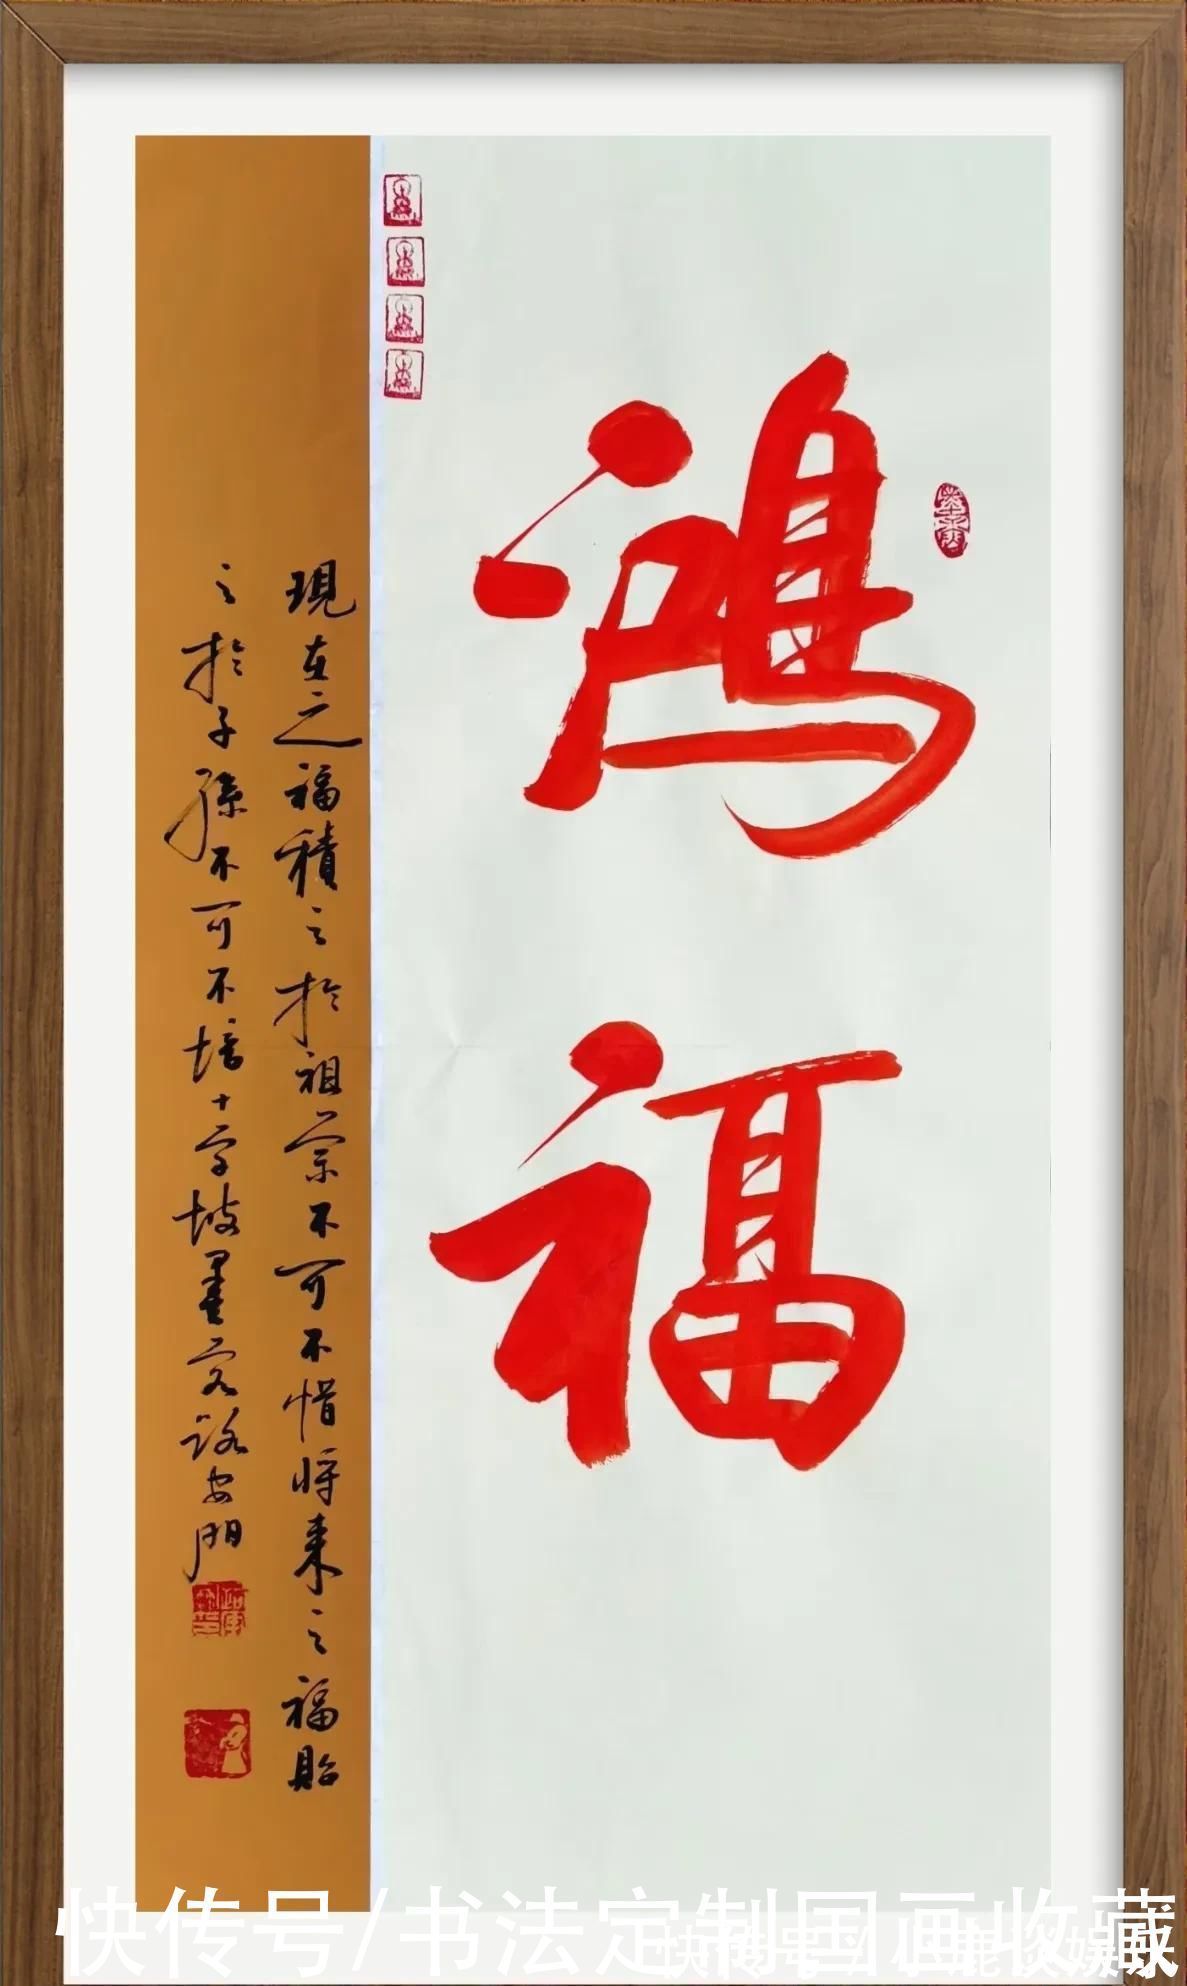 鴻福
現在之福積之於祖宗不可不惜将来之福貽
之於子孫不可不培十字坡墨客路安門
快传号/书法定制国画收藏